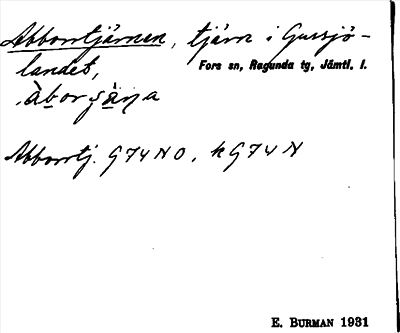 Abborrtjärnen, tjärn i Gussjö-
landet,
Fors sn, Ragunda tg, Jämtl. l.
Abborrtj. G74NO, k G74N
E. BURMAN 1931